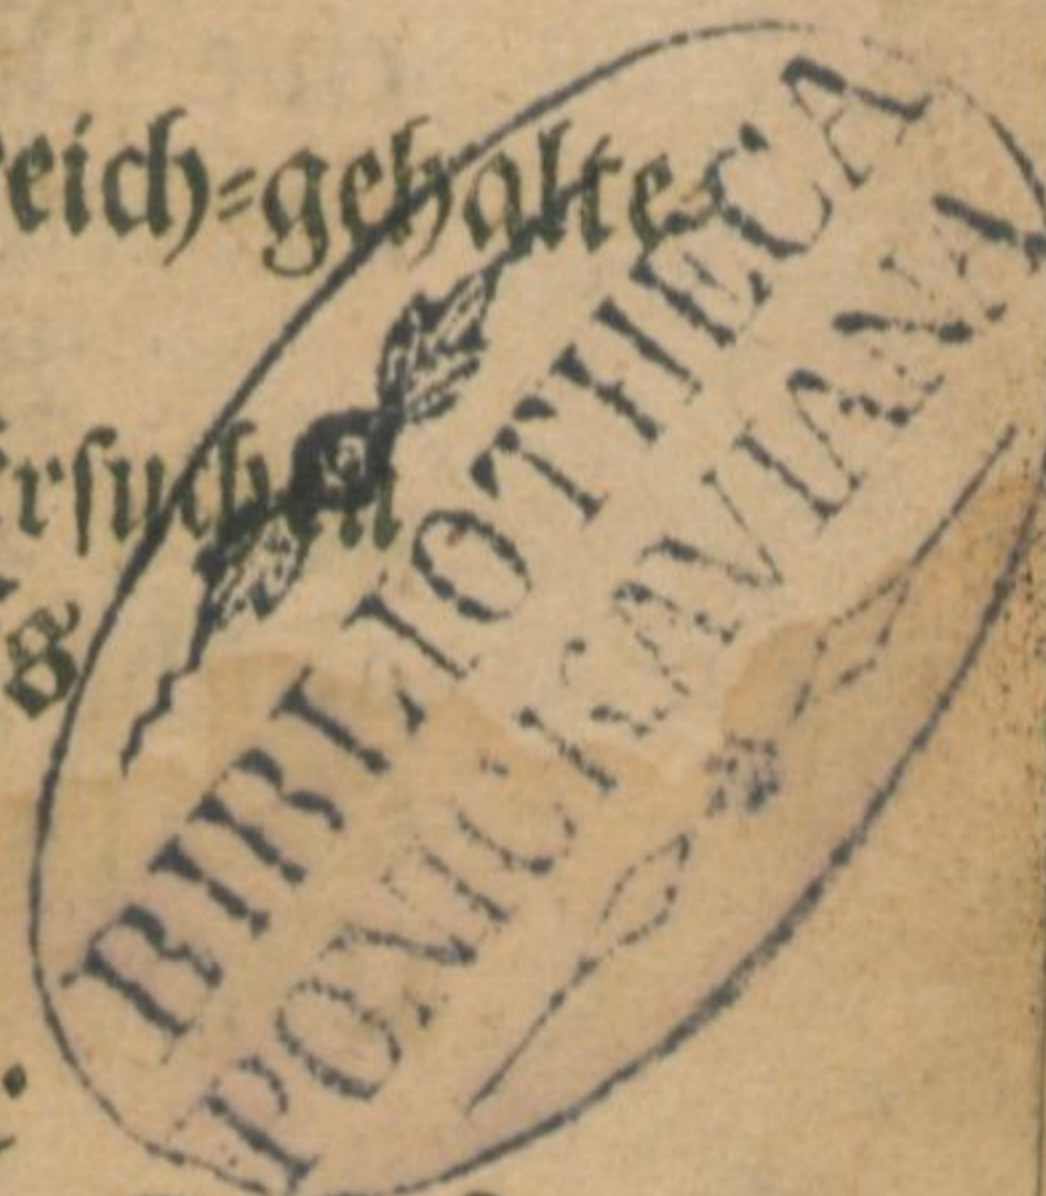 eich=gehalte
rſuchen
BIBLIOTHECA
PONICKAVIANA